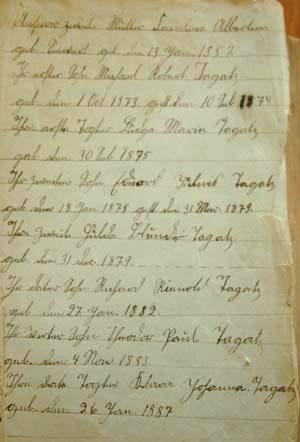 Unsere zweite Mutter Carolina Albertine
geb. geb. den 13 Jan. 1857
Ihr erster Sohn Michael Robert Tagatz
geb. den 1 Oct 1873 gest den 10 Feb 1874
Ihre erste Togter Maria Tagatz
geb den 30 1875
Ihr zweiter Sohn Eduart Tagatz
geb den 18 Jan 1878 gest den 31 Mer 1879.
Ihre zweite Hulda Tagatz
geb. den 31 Dec. 1879.
Ihr driter Sohn Richard Reinold Tagatz
geb. den 27 Jan. 1882.
Ihr virter Sohn Theodor Paul Tagatz
geb. den 4 Nov. 1883
Ihre drite Togter Clara Johanna Tagatz
geb. den 26 Jan. 1887